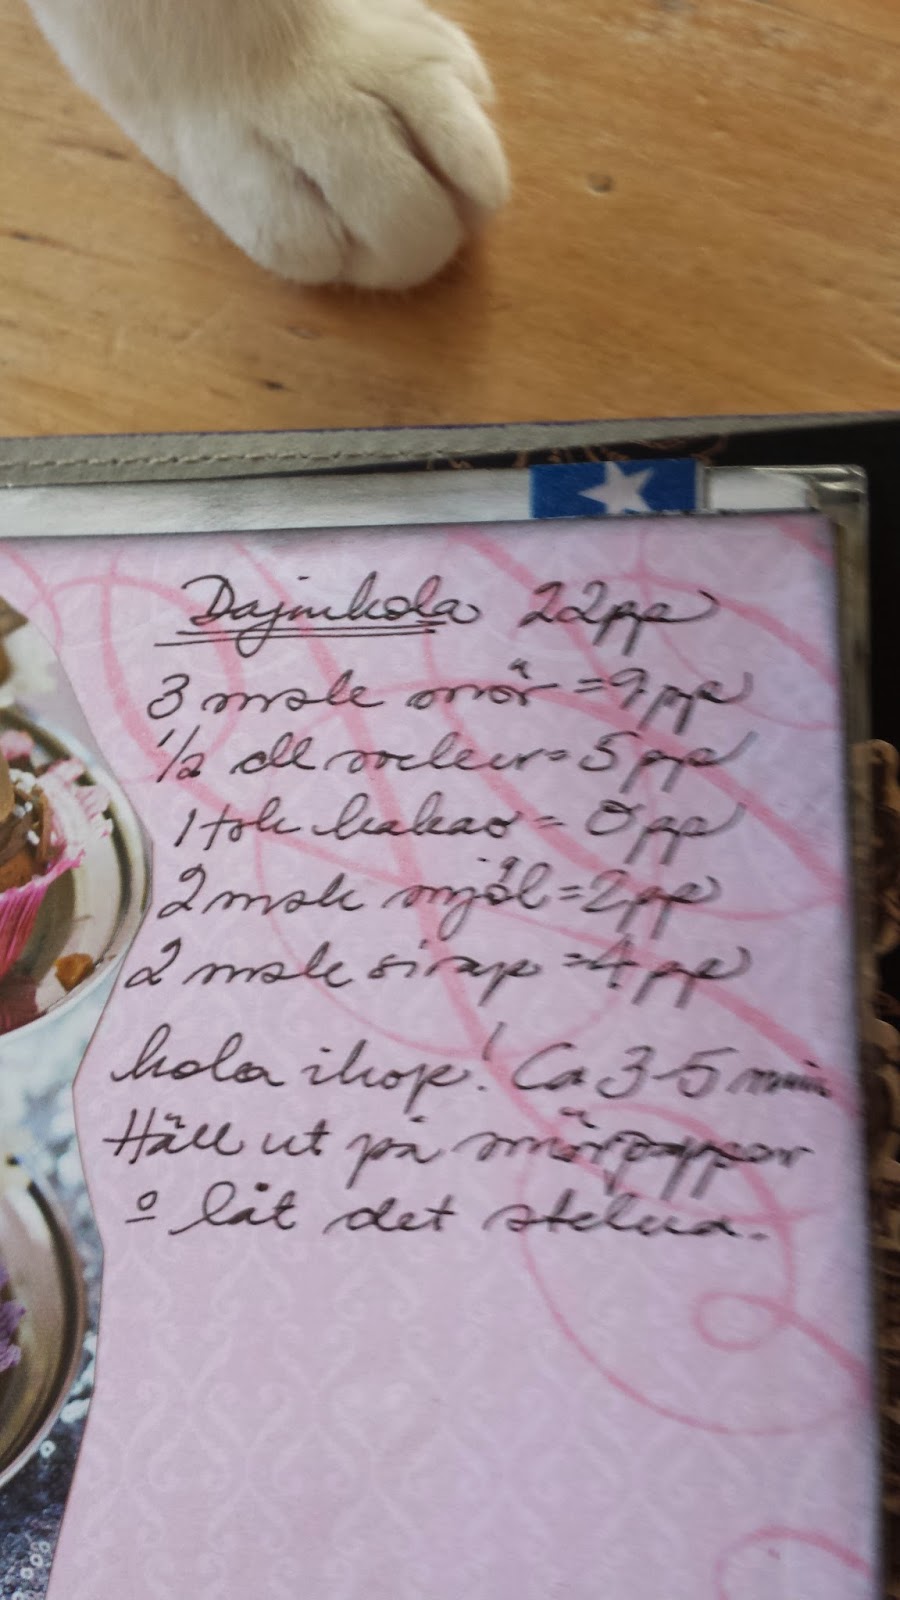 Dajmkola 22pp
3 msk smör = 9pp
1/2 dl socker = 5pp
1 tsk kakao = 0pp
2 msk mjöl = 2pp
2 msk sirap = 4pp
koka ihop! Ca 3-5 min
Häll ut på smörpapper
o låt det stelna.